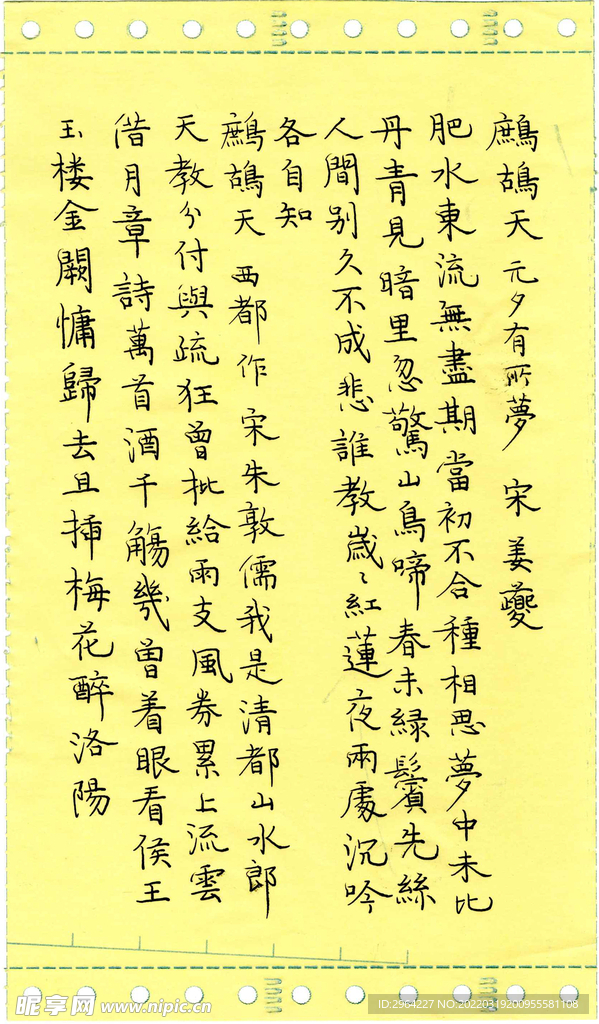 鷓鴣天 元夕有所夢 宋 姜夔
肥水東流無盡期當初不合種相思夢中未比
丹青見暗里忽驚山鳥啼春未綠鬢先絲
人間别久不成悲誰教嵗〻紅蓮夜兩處沉吟
各自知
鷓鴣天 西都作 宋朱敦儒我是清都山水郎
天教分付與疏狂曾批給雨支風券累上流雲
借月章詩萬首酒千觴幾曾着眼看侯王
玉楼金闕慵歸去且插梅花醉洛陽
昵享网 www.nipic.cn
ID:2964227 NO:20220319200955581108